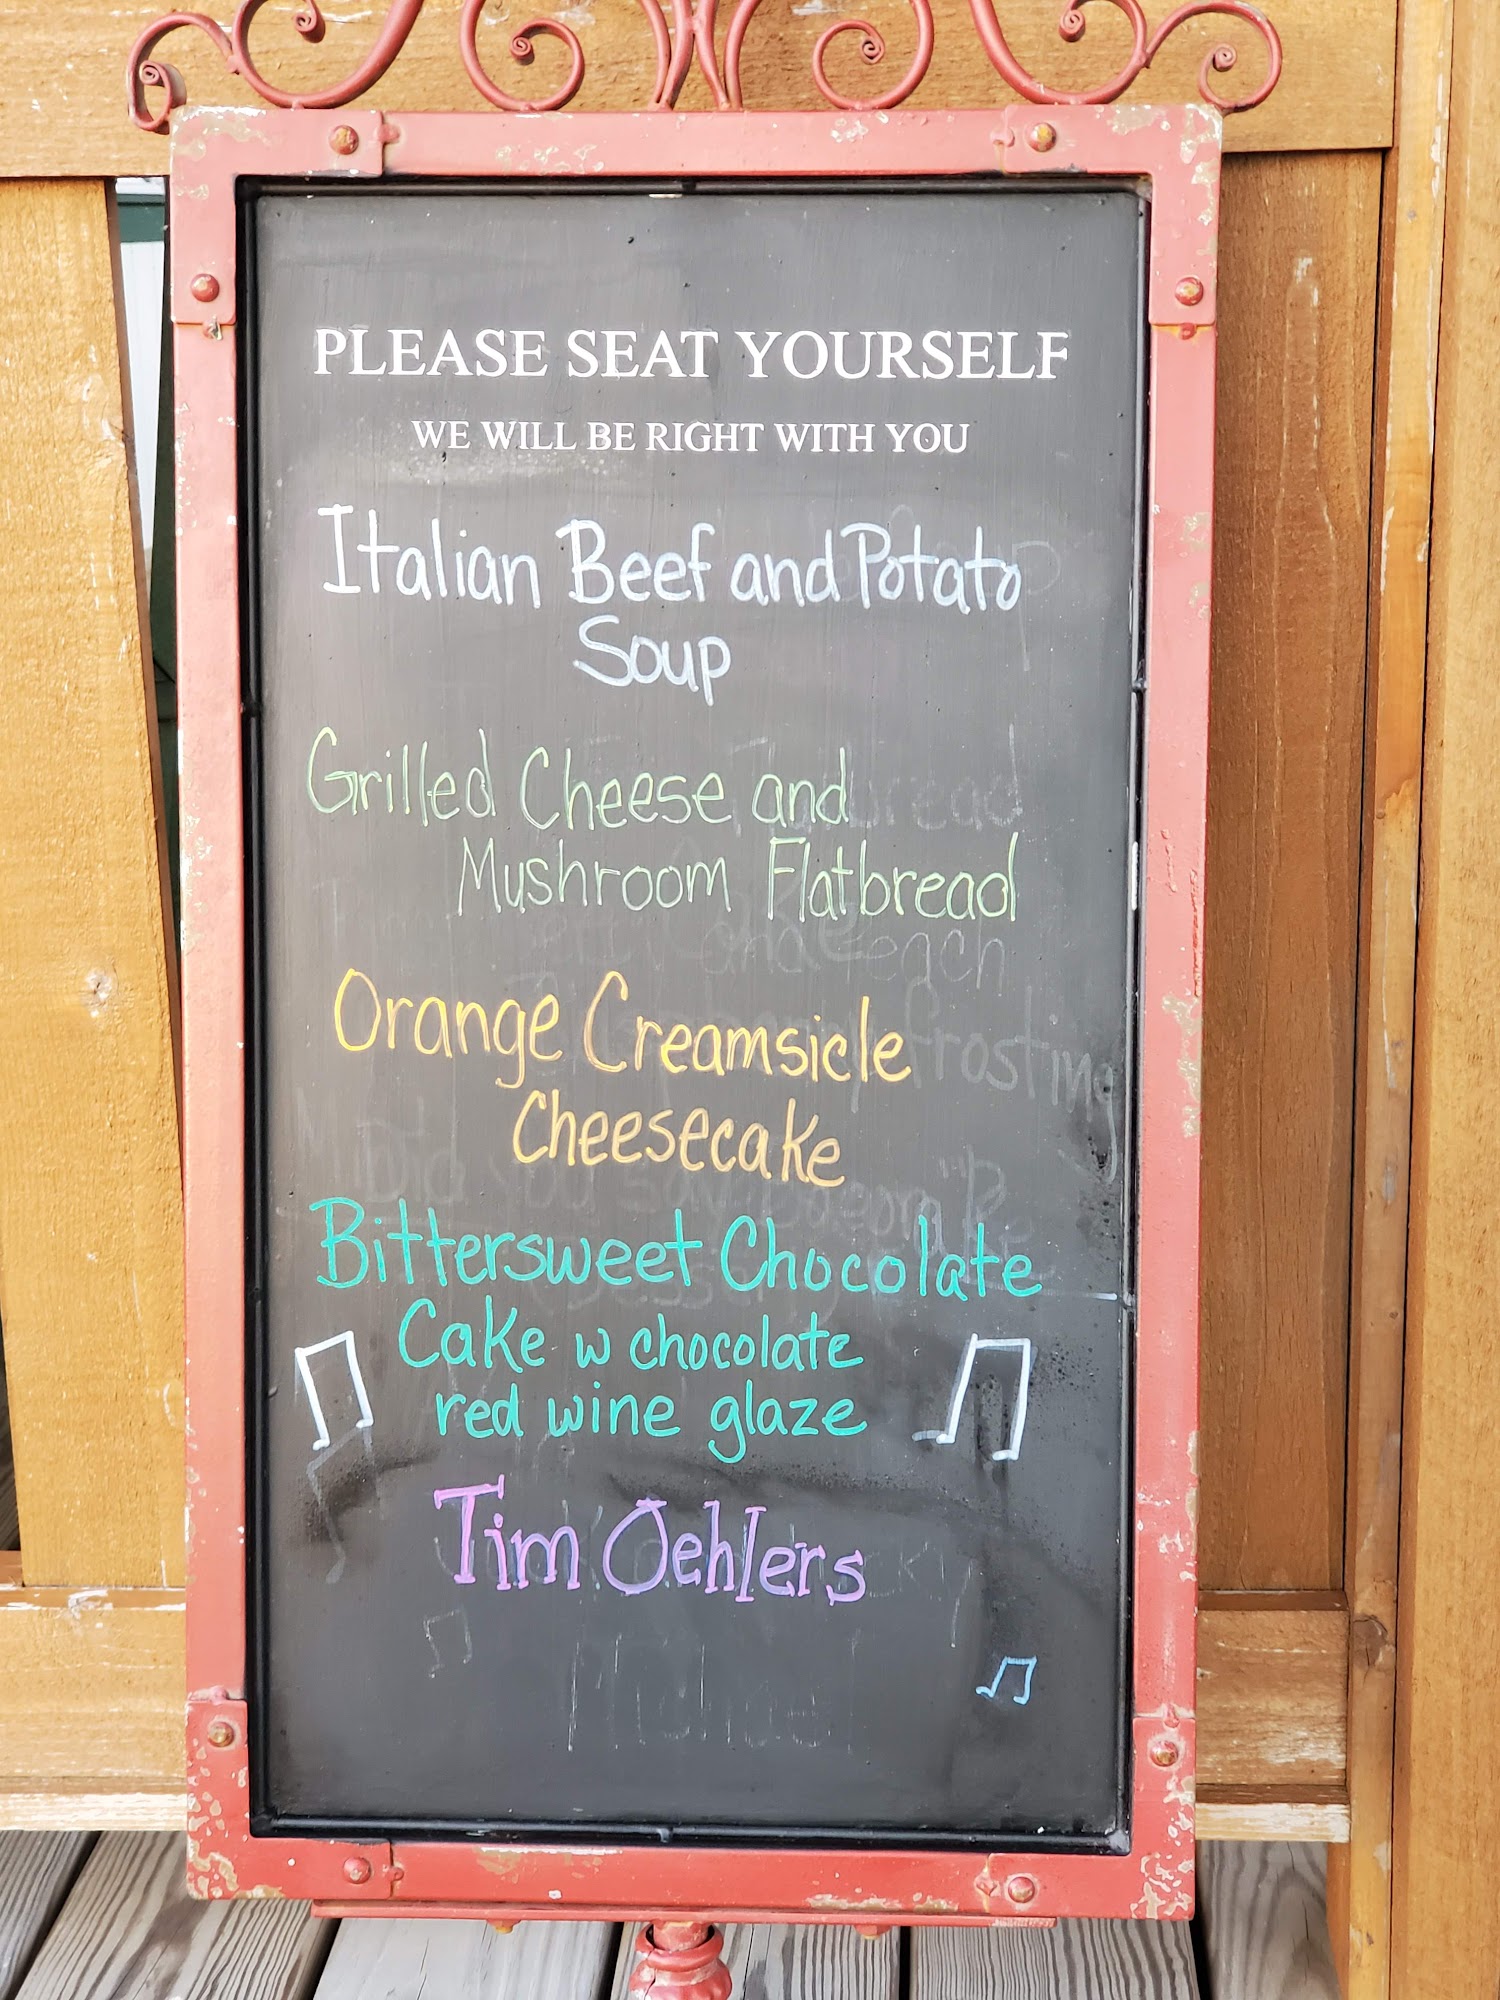 PLEASE SEAT YOURSELF
WE WILL BE RIGHT WITH YOU
Italian Beef and Potato
Soup
Grilled Cheese and
Mushroom Flatbread
Orange Creamsicle
Cheesecake
Bittersweet Chocolate
Cake w chocolate
red wine glaze
Tim Oehlers